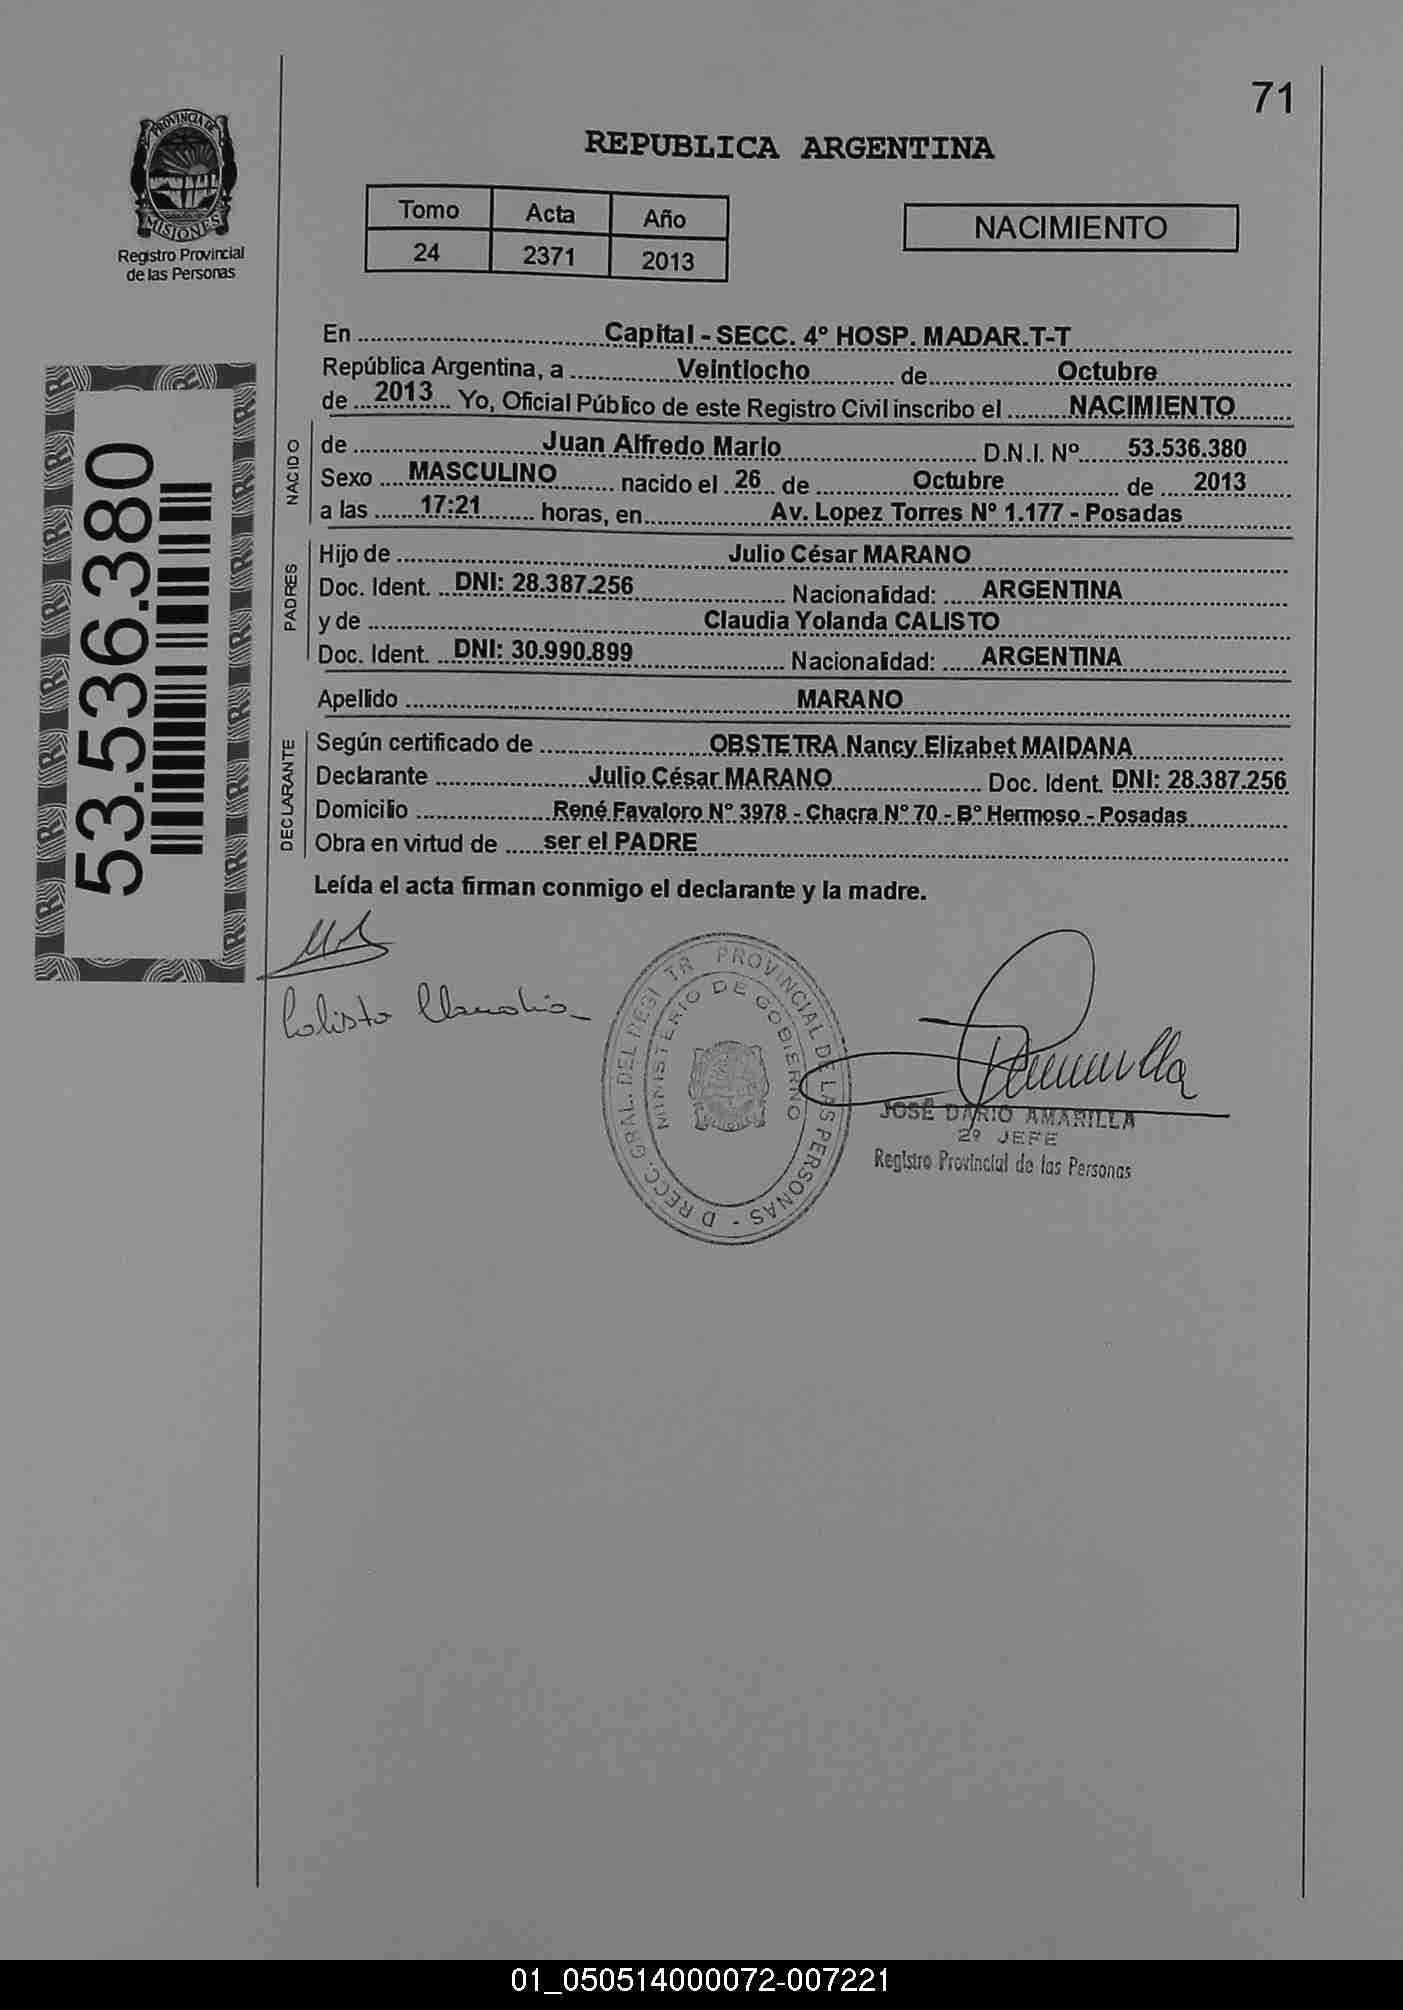 71
PROVINCIA DE
MISIONES
Registro Provincial
de las Personas
REPUBLICA ARGENTINA
Tomo Acta Año
24 2371 2013
NACIMIENTO
53.536.380
En Capital - SECC. 4° HOSP. MADAR.T-T
República Argentina, a Veintiocho de Octubre
de 2013 Yo, Oficial Público de este Registro Civil inscribo el NACIMIENTO
NACIDO
de Juan Alfredo Mario D.N.I. Nº 53.536.380
Sexo MASCULINO nacido el 26 de Octubre de 2013
a las 17:21 horas, en Av. Lopez Torres N° 1.177 - Posadas
PADRES
Hijo de Julio César MARANO
Doc. Ident. DNI: 28.387.256 Nacionalidad: ARGENTINA
y de Claudia Yolanda CALISTO
Doc. Ident. DNI: 30.990.899 Nacionalidad: ARGENTINA
Apellido MARANO
DECLARANTE
Según certificado de OBSTETRA Nancy Elizabet MAIDANA
Declarante Julio César MARANO Doc. Ident. DNI: 28.387.256
Domicilio René Favaloro N° 3978 - Chacra N° 70 - B° Hermoso - Posadas
Obra en virtud de ser el PADRE
Leída el acta firman conmigo el declarante y la madre.
Calisto Claudia
D RECC. GRAL. DEL REGI TR PROVINCIAL DE LAS PERSONAS -
MINISTERIO DE GOBIERNO
MISIONES
JOSÉ DARIO AMARILLA
2º JEFE
Registro Provincial de las Personas
01_050514000072-007221